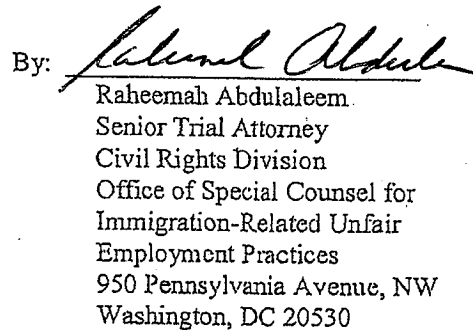 By: Raheemah Abdulaleem
Raheemah Abdulaleem
Senior Trial Attorney
Civil Rights Division
Office of Special Counsel for
Immigration-Related Unfair
Employment Practices
950 Pennsylvania Avenue, NW
Washington, DC 20530